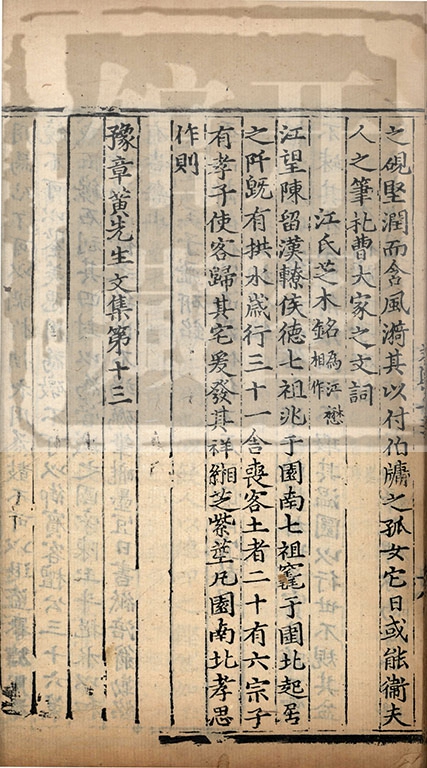 之硯堅潤而含風漪其以付伯牖之孤女它日或能衞夫
人之筆札曹大家之文詞
江氏芝木銘為江懋相作
江望陳留漢轑侯德七祖兆于園南七祖窀于園北起居
之阡旣有拱木歲行三十一舍喪客土者二十有六宗子
有孝子使客歸其宅爰發其祥緗芝紫莖凡園南北孝思
作則
豫章黃先生文集第十三